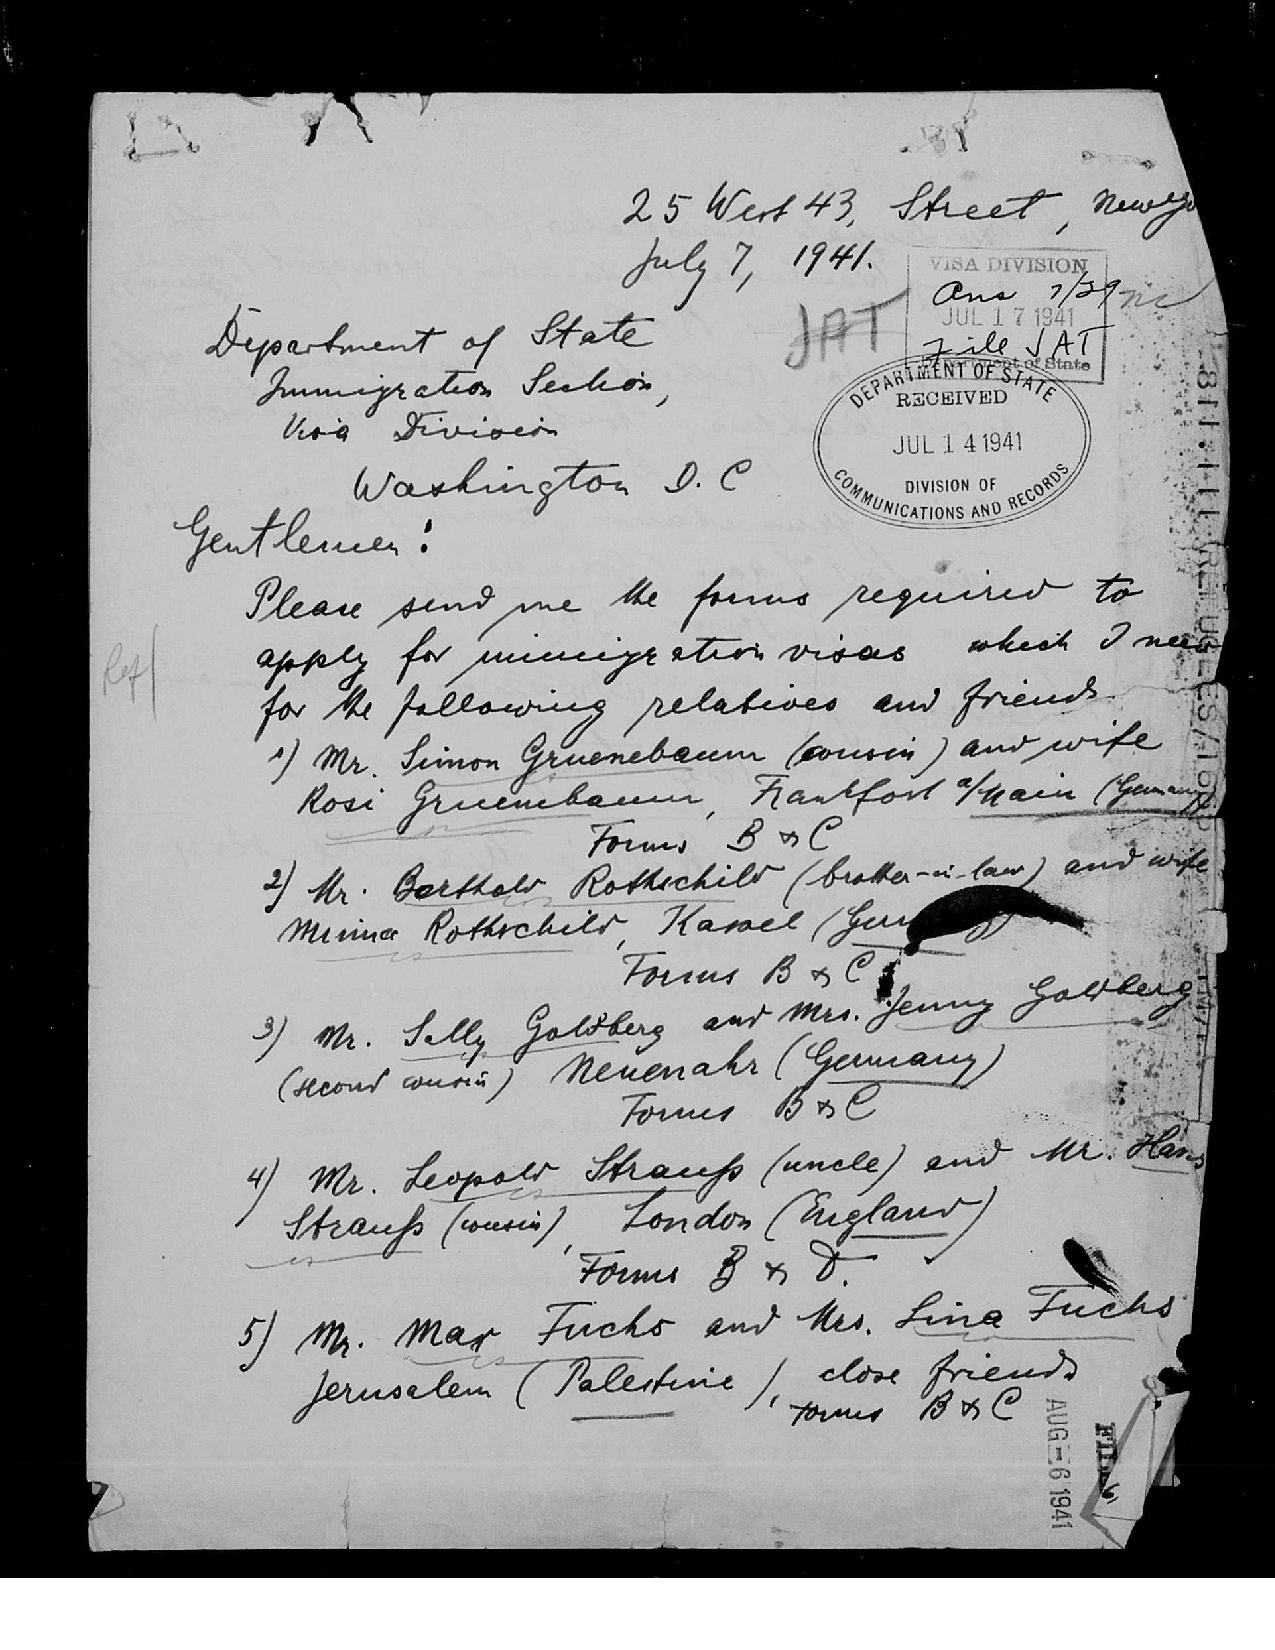 25 West 43, Street, New Yo
July 7, 1941.
VISA DIVISION
Ans 7/29
JUL 17 1941
File JAT
Department of State
JAT
DEPARTMENT OF STATE
RECEIVED
JUL 14 1941
DIVISION OF
COMMUNICATIONS AND RECORDS
Department of State
Immigration Section,
Visa Division
Washington D. C
Gentlemen:
Please send me the forms required to
apply for immigration visas which I need
for the following relatives and friends
Ref
1) Mr. Simon Gruenebaum (cousin) and wife
Rosi Gruenebaum, Frankfort a/Main (Germany)
Forms B & C
2) Mr. Berthold Rothschild (brother-in-law) and wife
Minna Rothschild, Kassel (Ger
Forms B & C
3) Mr. Sally Goldberg and Mrs. Jenny Goldberg
(second cousin) Neuenahr (Germany)
Forms B & C
4) Mr. Leopold Strauß (uncle) and Mr. Hans
Strauß (cousin), London (England)
Forms B & D.
5) Mr. Max Fuchs and Mrs. Lina Fuchs
Jerusalem (Palestine), close friends
Forms B & C
811.111 REFUGEES/
AUG - 6 1941